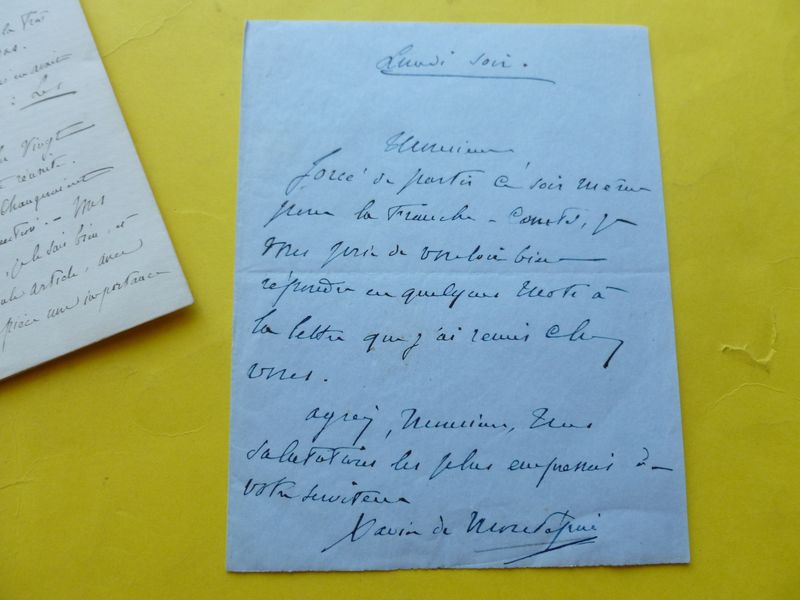 la
pas.
: Les
Vingt
réunite.
Changement
- Mes
, je le sais bien, et
article, avec
pièce une importance
Lundi soir.
Monsieur
forcé de partir ce soir même
pour la Franche-Comté, je
vous prie de vouloir bien
répondre en quelques mots à
la lettre que j'ai remis chez
vous.
agréez, Monsieur, mes
salutations les plus empressées
votre serviteur
Xavier de Montépin